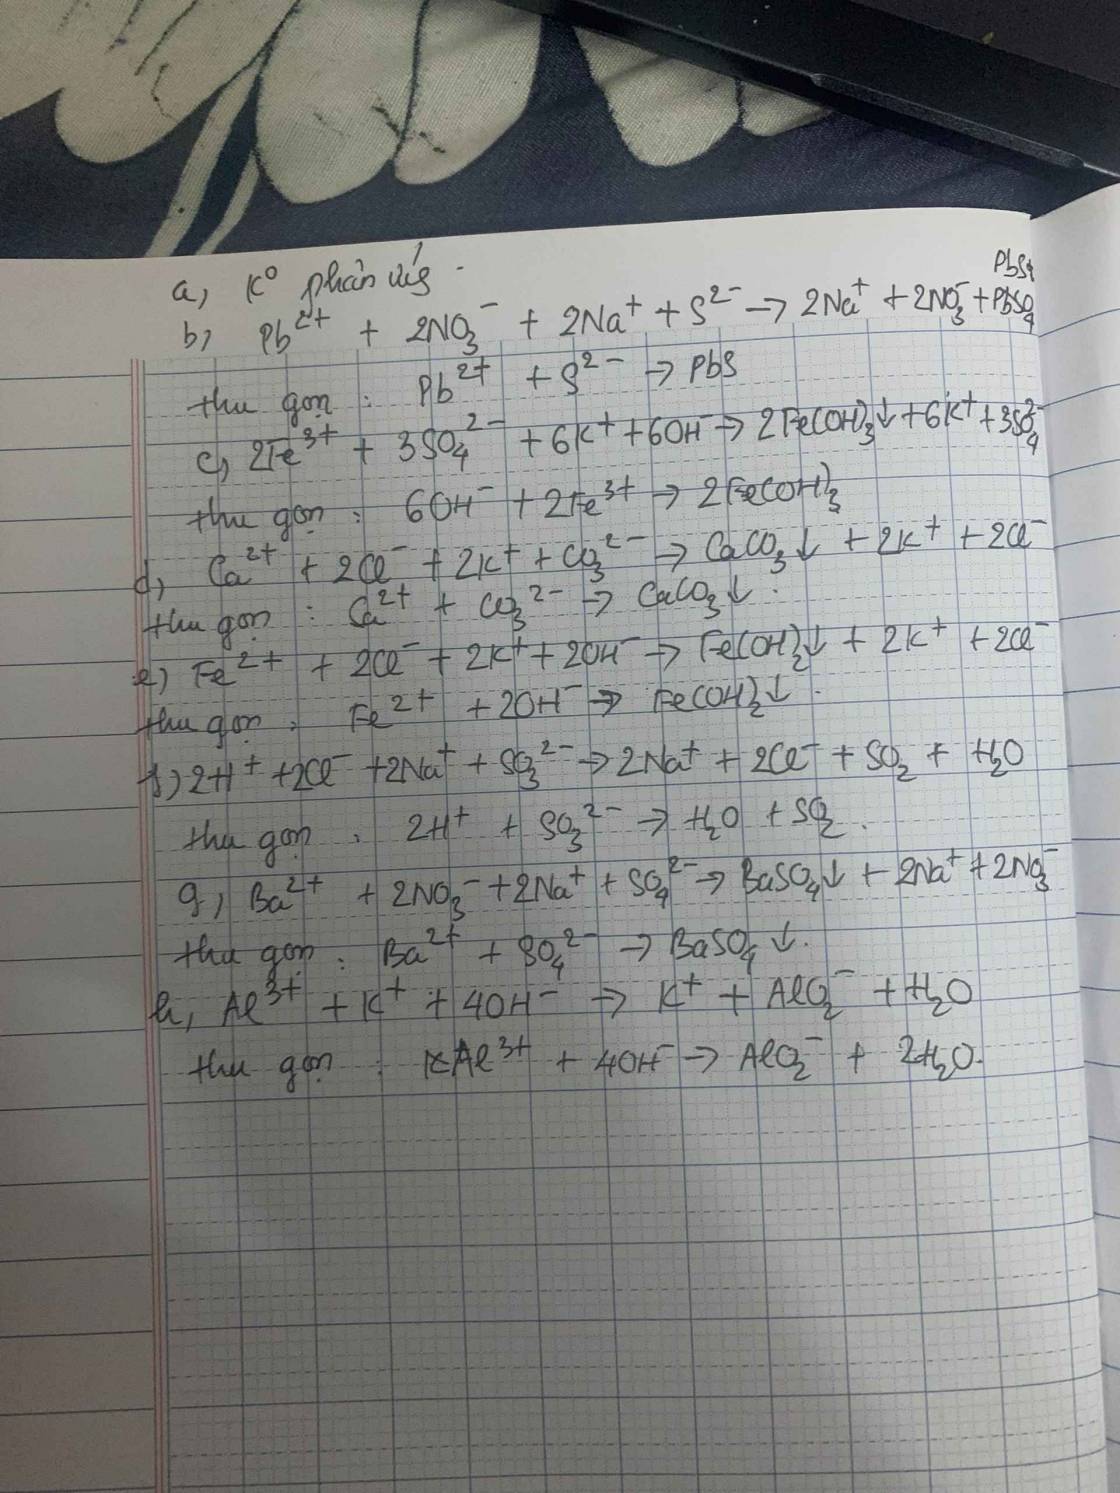 a, K⁰ phản ứng.
PbS↓
b, Pb²⁺ + 2NO₃⁻ + 2Na⁺ + S²⁻ → 2Na⁺ + 2NO₃⁻ + PbSO₄
thu gọn : Pb²⁺ + S²⁻ → PbS
c, 2Fe³⁺ + 3SO₄²⁻ + 6K⁺ + 6OH⁻ → 2Fe(OH)₃↓ + 6K⁺ + 3SO₄²⁻
thu gọn : 6OH⁻ + 2Fe³⁺ → 2Fe(OH)₃
d, Ca²⁺ + 2Cl⁻ + 2K⁺ + CO₃²⁻ → CaCO₃↓ + 2K⁺ + 2Cl⁻
thu gọn : Ca²⁺ + CO₃²⁻ → CaCO₃↓.
e) Fe²⁺ + 2Cl⁻ + 2K⁺ + 2OH⁻ → Fe(OH)₂↓ + 2K⁺ + 2Cl⁻
thu gọn : Fe²⁺ + 2OH⁻ → Fe(OH)₂↓.
f) 2H⁺ + 2Cl⁻ + 2Na⁺ + SO₃²⁻ → 2Na⁺ + 2Cl⁻ + SO₂ + H₂O
thu gọn : 2H⁺ + SO₃²⁻ → H₂O + SO₂.
g, Ba²⁺ + 2NO₃⁻ + 2Na⁺ + SO₄²⁻ → BaSO₄↓ + 2Na⁺ + 2NO₃⁻
thu gọn : Ba²⁺ + SO₄²⁻ → BaSO₄↓.
h, Al³⁺ + K⁺ + 4OH⁻ → K⁺ + AlO₂⁻ + H₂O
thu gọn : Al³⁺ + 4OH⁻ → AlO₂⁻ + 2H₂O.